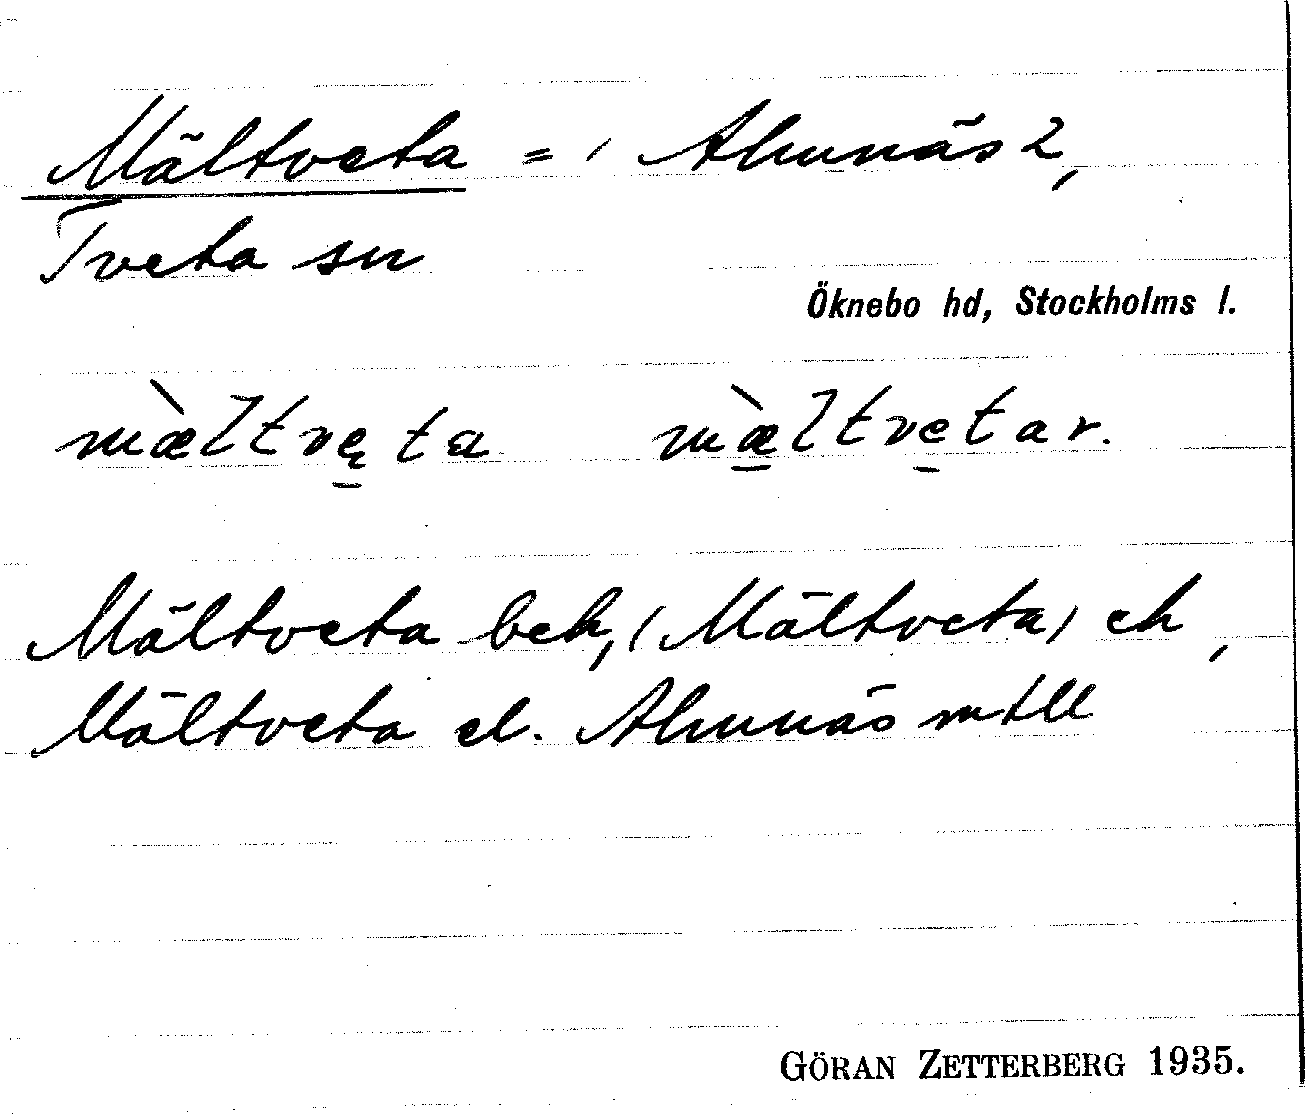 Mältveta = / Almnäs 2,
Tveta sn
Öknebo hd, Stockholms l.
mæ̀ltvę̱ta mæ̱̀ltve̱tar.
Mältveta bek, (Mältveta) ek,
Mältveta el. Almnäs mtll
GÖRAN ZETTERBERG 1935.